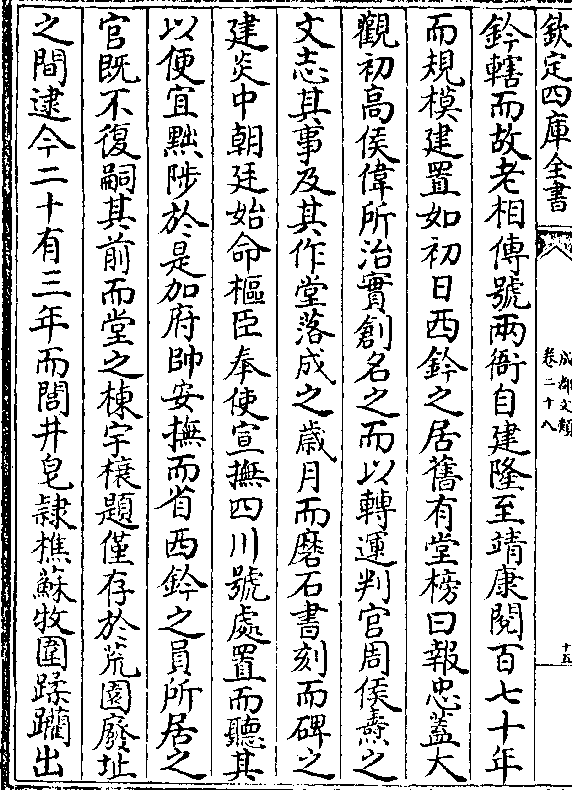 欽定四庫全書
成都文類
卷二十八
十五
鈐轄而故老相傳號兩衙自建隆至靖康閱百七十年
而規模建置如初日西鈐之居舊有堂榜曰報忠蓋大
觀初高侯偉所治實創名之而以轉運判官周侯燾之
文志其事及其作堂落成之歲月而磨石書刻而碑之
建炎中朝廷始命樞臣奉使宣撫四川號處置而聽其
以便宜黜陟於是加府帥安撫而省西鈐之員所居之
官既不復嗣其前而堂之棟宇榱題僅存於荒園廢址
之間逮今二十有三年而閭井皂隷樵蘇牧圉蹂躪出